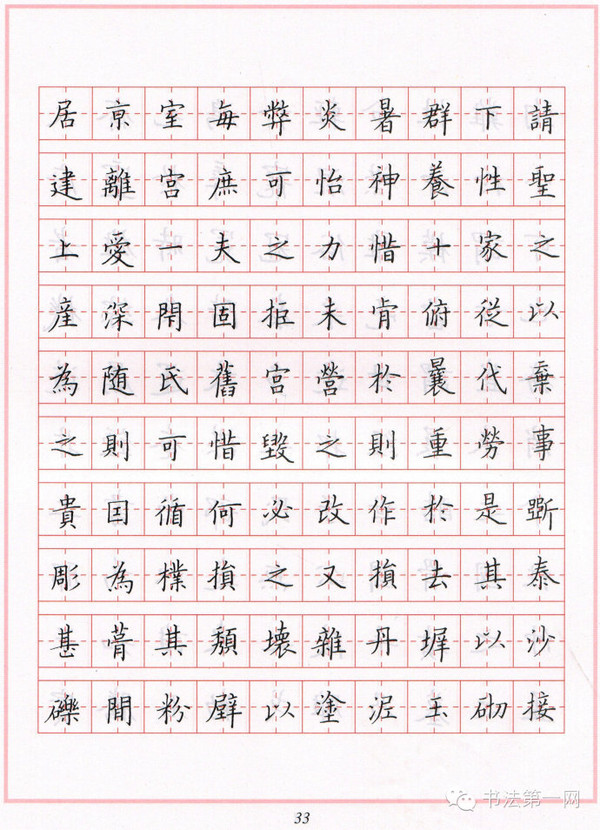 居京室每弊炎暑群下請
建離宮庶可怡神養性聖
上愛一夫之力惜十家之
産深閇固拒未肯俯從以
為随氏舊宮營於曩代棄
之則可惜毀之則重勞事
貴囙循何必改作於是斲
彫為樸損之又損去其泰
甚葺其頽壞雜丹墀以沙
礫間粉壁以塗泥玉砌接
书法第一网
33